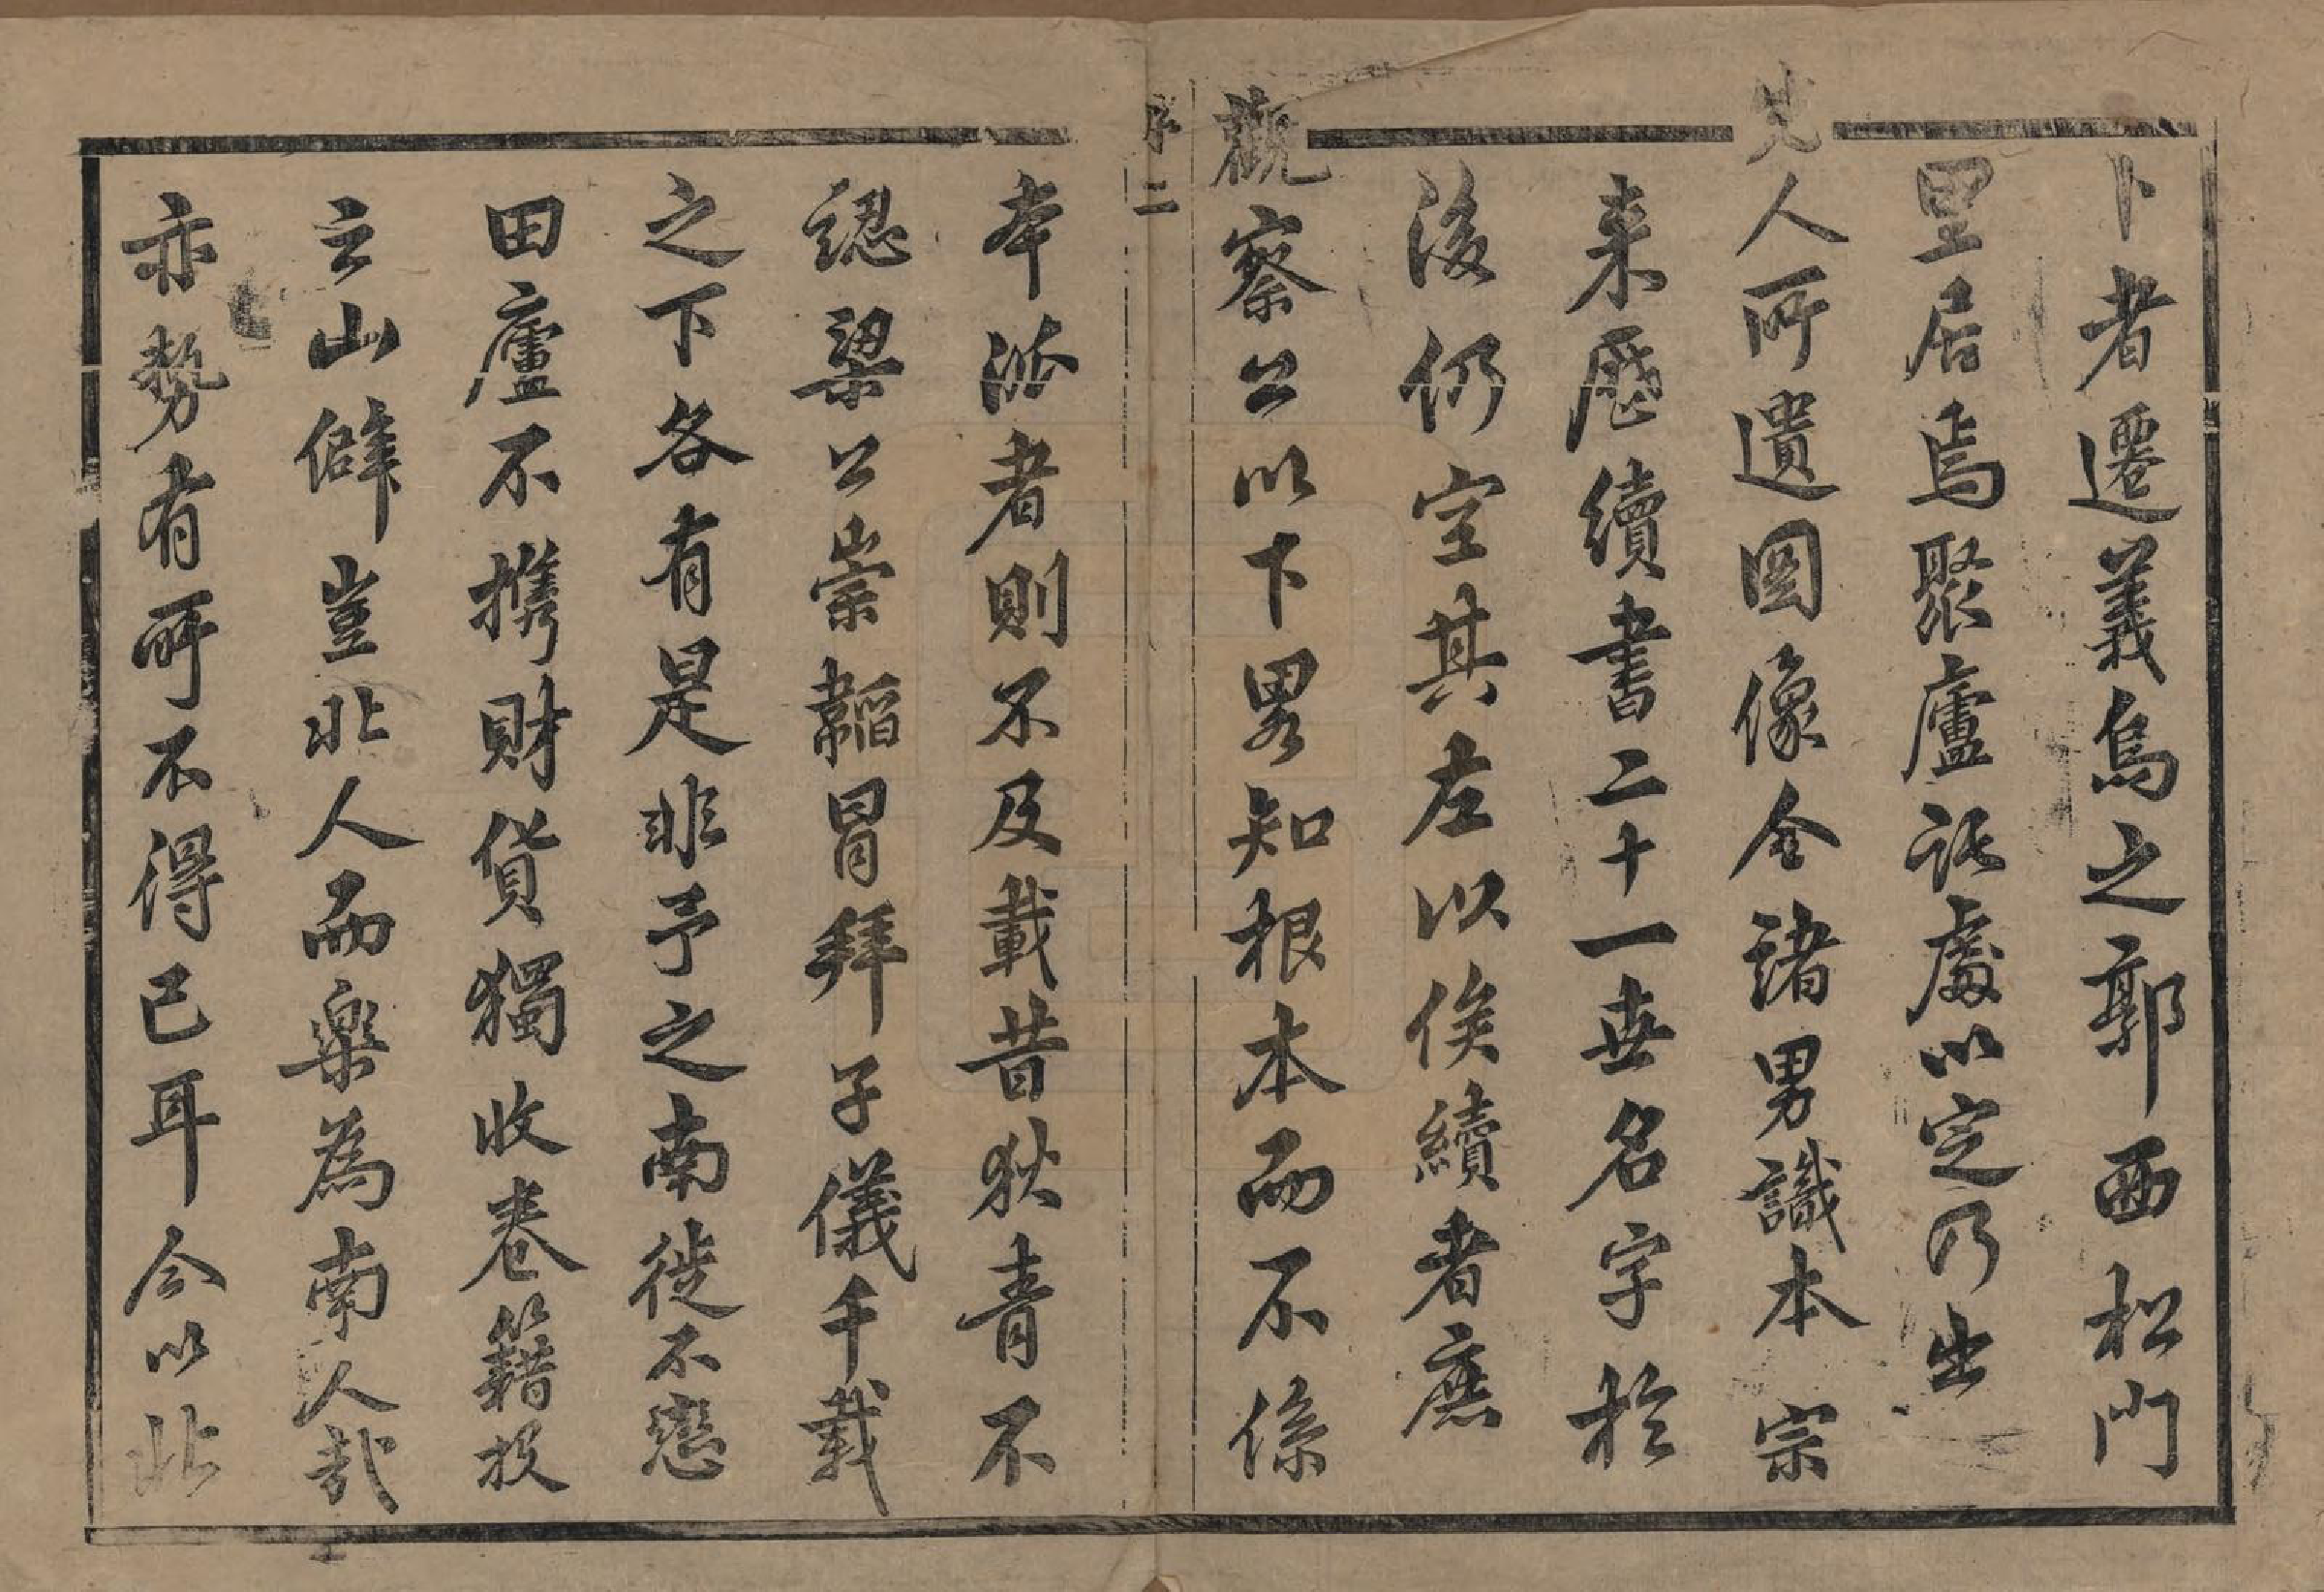 卜者遷義烏之郭西松門
里居焉聚廬託處以定乃出
先人所遺圖像全諸男識本宗
来歷續書二十一世名字於
後仍空其左以俟續者庶
觀察公以下畧知根本而不係
序二
本派者則不及載昔狄青不
認梁公崇韜冒拜子儀千載
之下各有是非予之南徙不戀
田廬不携財貨獨收卷籍投
之山僻豈北人而樂為南人哉
亦勢有所不得已耳今以此